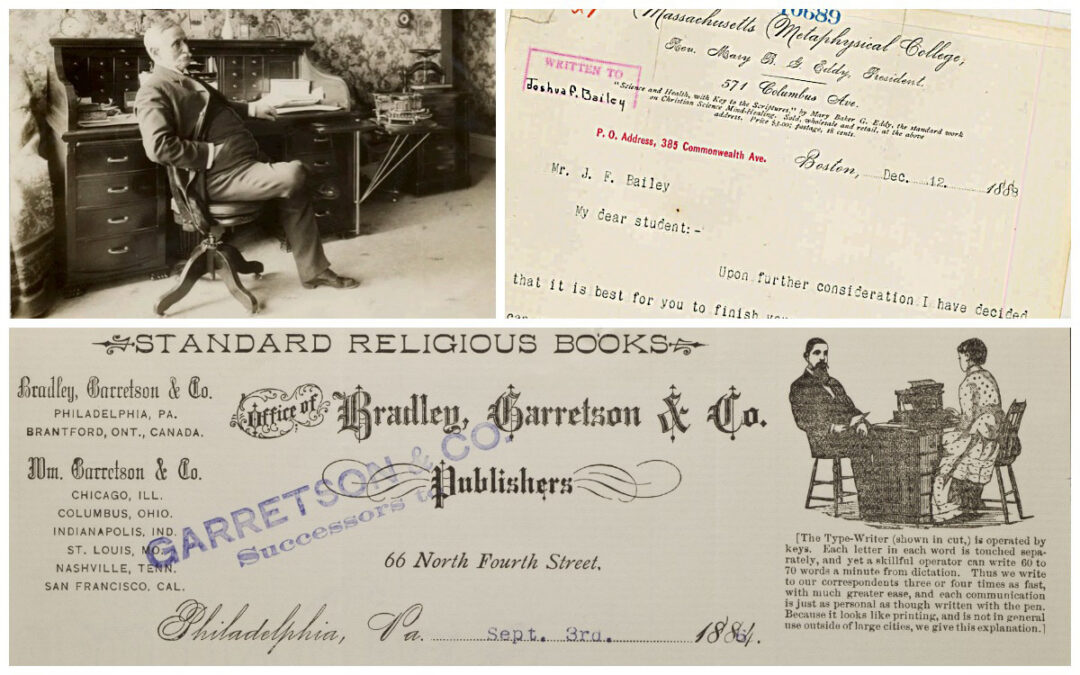 10689
Massachusetts Metaphysical College,
Rev. Mary B. G. Eddy, President.
571 Columbus Ave.
"Science and Health, with Key to the Scriptures," by Mary Baker G. Eddy, the standard work
on Christian Science Mind-Healing. Sold, wholesale and retail, at the above
address. Price $3.00; postage, 18 cents.
WRITTEN TO
Joshua F. Bailey
P. O. Address, 385 Commonwealth Ave.
Boston, Dec. 12 1888
Mr. J. F. Bailey
My dear student:-
Upon further consideration I have decided
that it is best for you to finish
STANDARD RELIGIOUS BOOKS
Bradley, Garretson & Co.
PHILADELPHIA, PA.
BRANTFORD, ONT., CANADA.
Wm. Garretson & Co.
CHICAGO, ILL.
COLUMBUS, OHIO.
INDIANAPOLIS, IND.
ST. LOUIS, MO.
NASHVILLE, TENN.
SAN FRANCISCO, CAL.
Office of Bradley, Garretson & Co.
Publishers
GARRETSON & CO.
Successors to
66 North Fourth Street,
Philadelphia, Pa. Sept. 3rd. 188
[The Type-Writer (shown in cut,) is operated by
keys. Each letter in each word is touched sepa-
rately, and yet a skillful operator can write 60 to
70 words a minute from dictation. Thus we write
to our correspondents three or four times as fast,
with much greater ease, and each communication
is just as personal as though written with the pen.
Because it looks like printing, and is not in general
use outside of large cities, we give this explanation.]